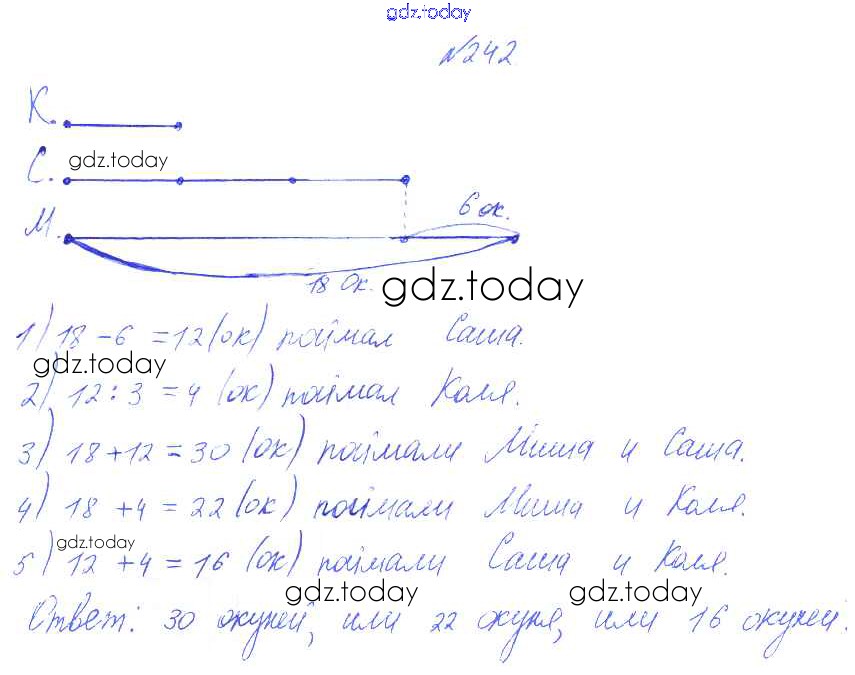 gdz.today
№242
К.
gdz.today
С.
6 ок.
М.
18 Ок.
gdz.today
1) 18 - 6 = 12 (ок) поймал Саша.
gdz.today
2) 12 : 3 = 4 (ок) поймал Коля.
3) 18 + 12 = 30 (ок) поймали Миша и Саша.
4) 18 + 4 = 22 (ок) поймали Миша и Коля.
gdz.today
5) 12 + 4 = 16 (ок) поймали Саша и Коля.
gdz.today gdz.today
Ответ: 30 окуней, или 22 окуня, или 16 окуней.